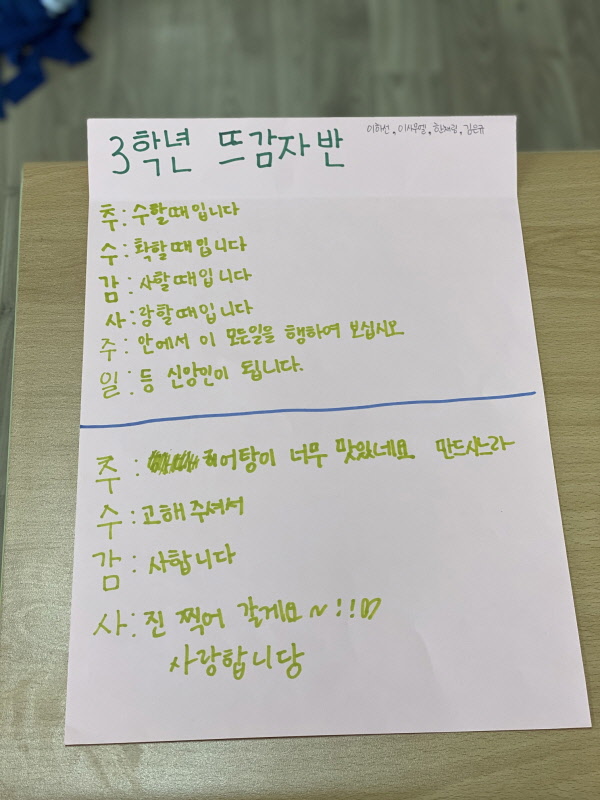 3학년 뜨감자반 이하선, 이사무엘, 한채림, 김은규
추: 수할때입니다
수: 확할때입니다
감: 사할때입니다
사: 랑할때입니다
주: 안에서 이 모든일을 행하여 보십시오
일: 등 신앙인이 됩니다.
추: 어탕이 너무 맛있네요 만드시느라
수: 고해주셔서
감: 사합니다
사: 진 찍어 갈게요~!!♡
사랑합니당